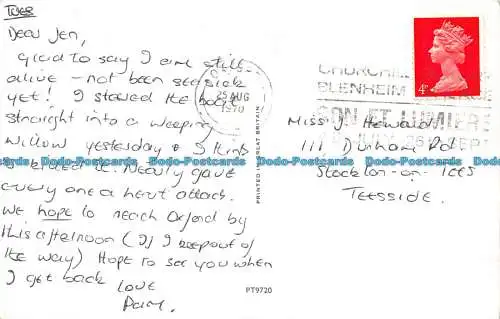 TUES
Dear Jen,
glad to say I am still
alive - not been seasick
yet! I stewed the boat
straight into a weeping
willow yesterday & I
it. Nearly gave
every one a heart attack.
We hope to reach Oxford by
this afternoon (If I keep out of
the way) Hope to see you when
I get back
Love
Pam.
25 AUG
1970
CHURCHILL
BLENHEIM
SON ET LUMIERE
4d
PRINTED IN GREAT BRITAIN
Miss J. Howard
111 Durham Rd
Stockton-on-Tees
TEESSIDE.
PT9720
Dodo-Postcards Dodo-Postcards Dodo-Postcards Dodo-Postcards